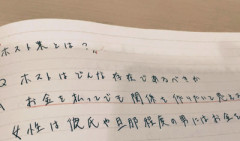 ホスト業とは?
Q ホストはどんな存在であるべきか
A お金を払ってでも関係を作りたいと思える
女性は彼氏や旦那程度の男にはお金を